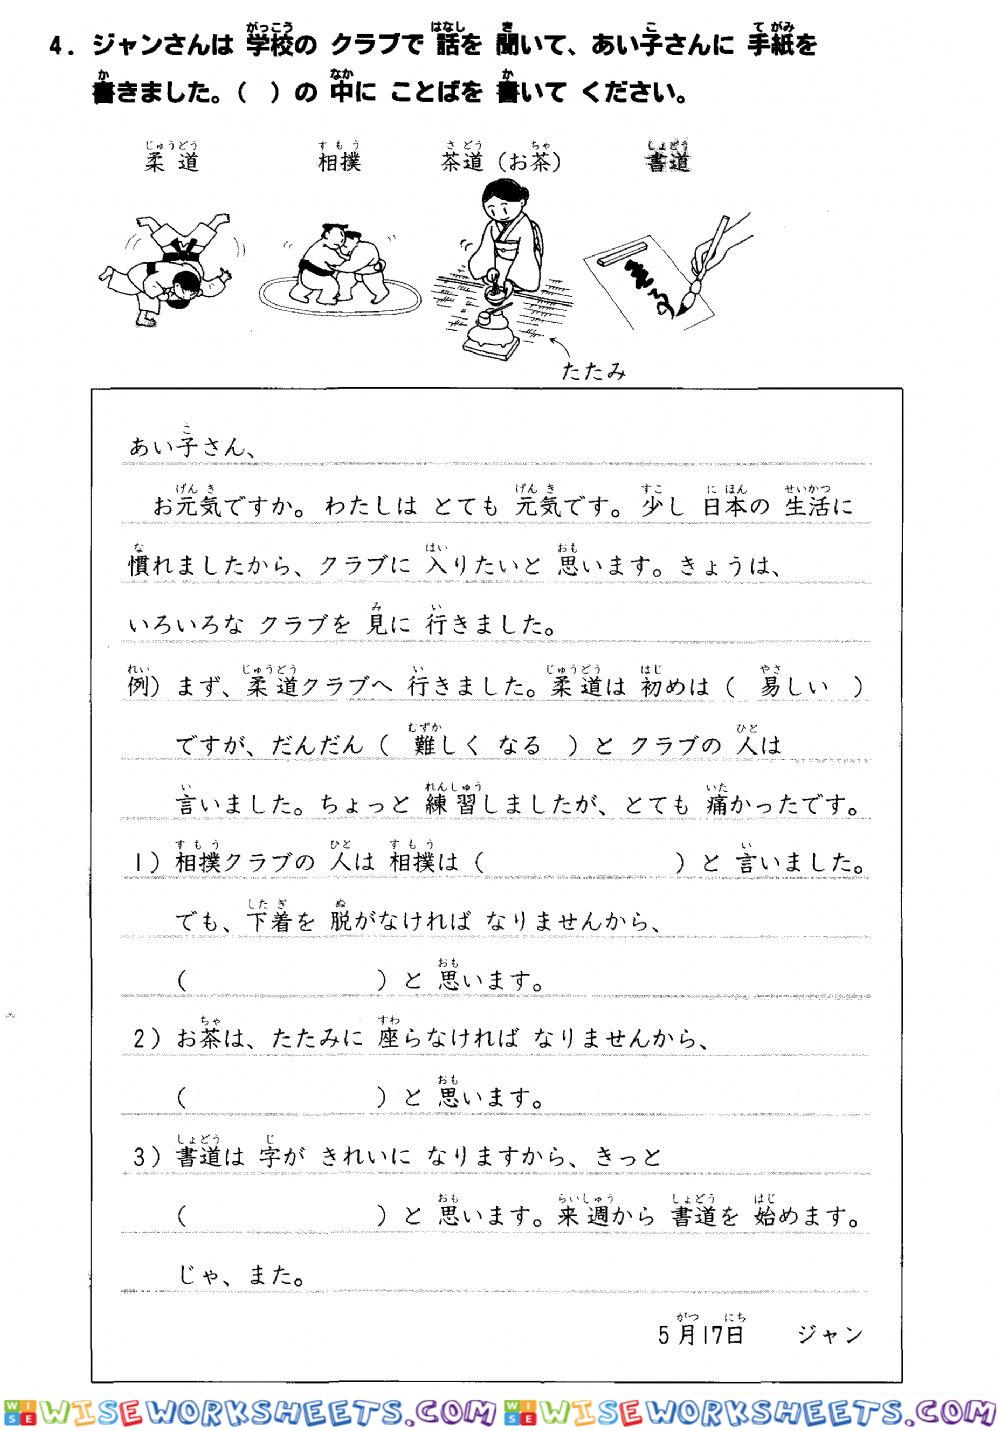 4．ジャンさんは 学校の クラブで 話を 聞いて、あい子さんに 手紙を
書きました。（　）の 中に ことばを 書いて ください。
柔道　相撲　茶道（お茶）　書道
たたみ
あい子さん、
お元気ですか。わたしは とても 元気です。少し 日本の 生活に
慣れましたから、クラブに 入りたいと 思います。きょうは、
いろいろな クラブを 見に 行きました。
例）まず、柔道クラブへ 行きました。柔道は 初めは（　易しい　）
ですが、だんだん（　難しく なる　）と クラブの 人は
言いました。ちょっと 練習しましたが、とても 痛かったです。
1）相撲クラブの 人は 相撲は（　　　　　　）と 言いました。
でも、下着を 脱がなければ なりませんから、
（　　　　　　）と 思います。
2）お茶は、たたみに 座らなければ なりませんから、
（　　　　　　）と 思います。
3）書道は 字が きれいに なりますから、きっと
（　　　　　　）と 思います。来週から 書道を 始めます。
じゃ、また。
5月17日　ジャン
WISEWORKSHEETS.COM WISEWORKSHEETS.COM